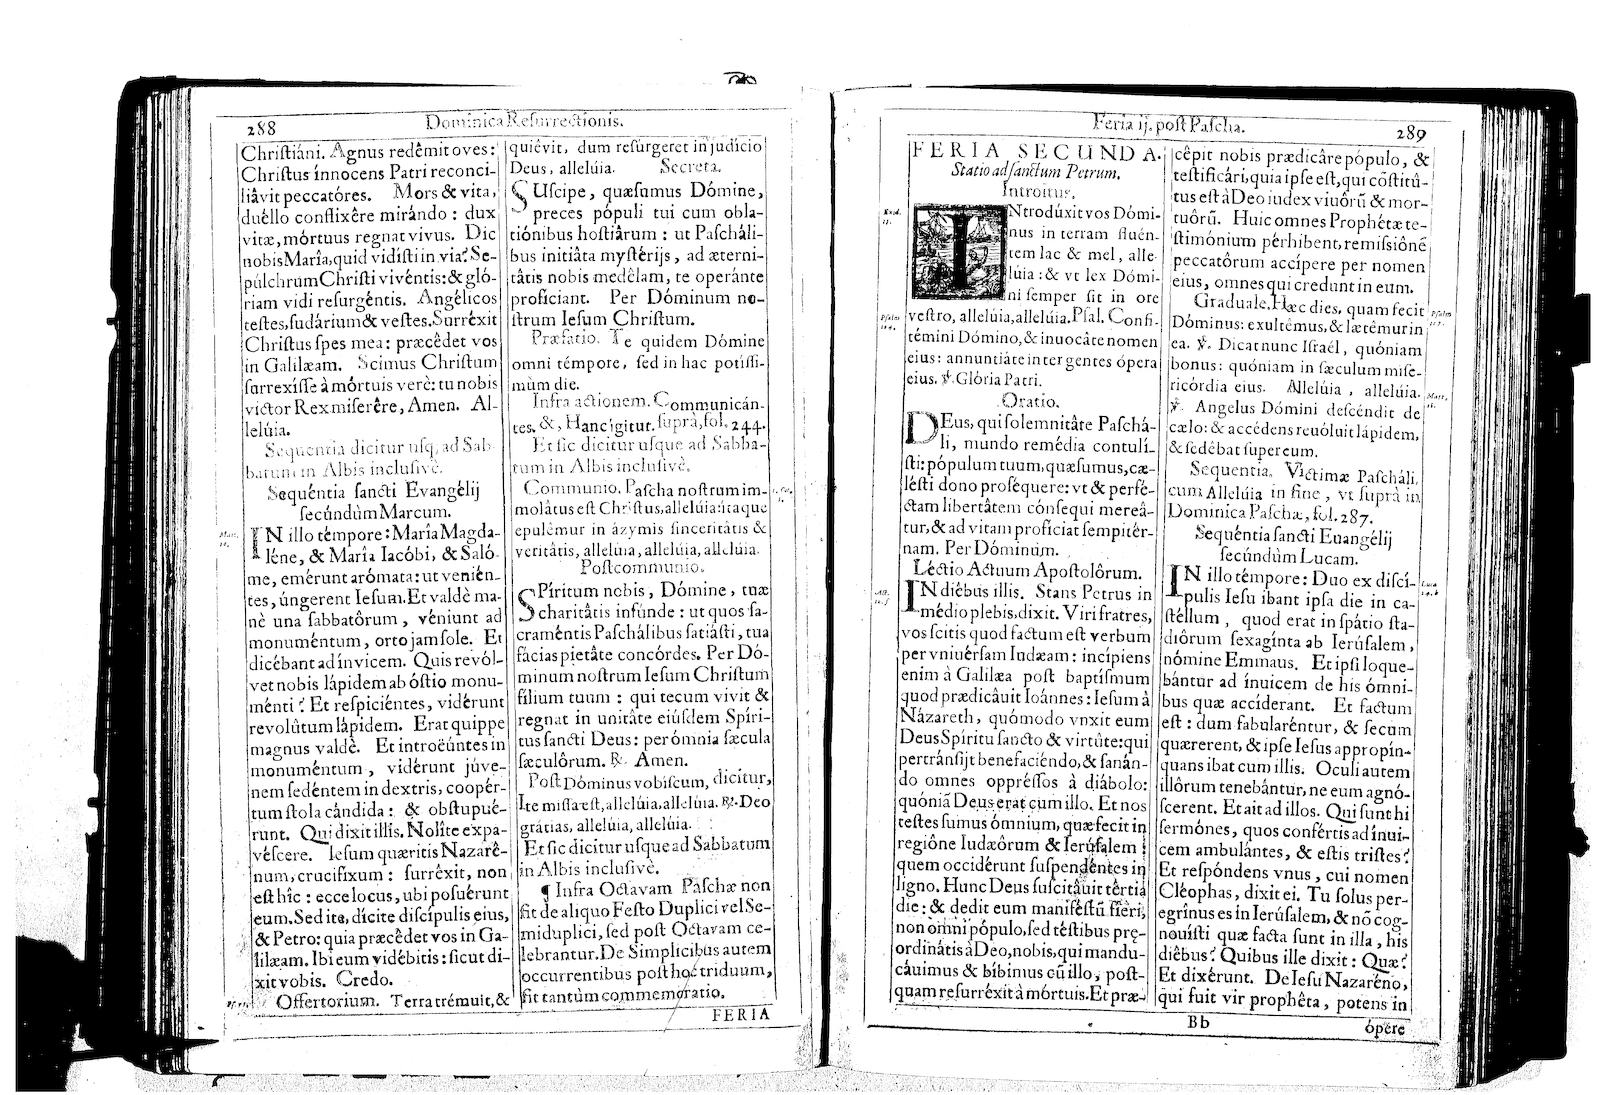 288
Dominica Reſurrectionis.
Chriſtiáni. Agnus redêmit oves:
Chriſtus ínnocens Patri reconci-
liâvit peccatóres. Mors & vita,
duéllo conflixêre mirándo : dux
vitæ, mórtuus regnat vivus. Dic
nobis María, quid vidíſti in via? Se-
púlchrum Chriſti vivéntis: & gló-
riam vidi reſurgéntis. Angélicos
teſtes, ſudárium & veſtes. Surréxit
Chriſtus ſpes mea : præcêdet vos
in Galilæam. Scimus Chriſtum
ſurrexíſſe à mórtuis verè: tu nobis
víctor Rex miſerêre, Amen. Al-
lelúia.
Sequentia dicitur uſq; ad Sab-
batum in Albis incluſivè.
Sequéntia ſancti Evangélij
ſecúndùm Marcum.
IN illo témpore: María Magda-
léne, & María Iacóbi, & Saló-
me, emérunt arómata: ut venién-
tes, úngerent Ieſum. Et valdè ma-
nè una ſabbatôrum , véniunt ad
monuméntum, orto jam ſole. Et
dicêbant ad ínvicem. Quis revól-
vet nobis lápidem ab óſtio monu-
ménti? Et reſpiciéntes, vidérunt
revolûtum lápidem. Erat quippe
magnus valdè. Et introëúntes in
monuméntum , vidérunt júve-
nem ſedéntem in dextris, coopér-
tum ſtola cándida : & obſtupué-
runt. Qui dixit illis. Nolîte expa-
véſcere. Ieſum quæritis Nazarê-
num, crucifíxum : ſurréxit, non
eſt hîc : ecce locus, ubi poſuérunt
eum. Sed ite, dícite diſcípulis eius,
& Petro: quia præcêdet vos in Ga-
lilæam. Ibi eum vidébitis: ſicut di-
xit vobis. Credo.
Offertorium. Terra trémuit, &
quiévit, dum reſúrgeret in judício
Deus, allelúia. Secreta.
SUſcipe, quæſumus Dómine,
preces pópuli tui cum obla-
tiónibus hoſtiârum : ut Paſcháli-
bus initiâta myſtérijs, ad æterni-
tâtis nobis medêlam, te operánte
proficiant. Per Dóminum no-
ſtrum Ieſum Chriſtum.
Præfatio. Te quidem Dómine
omni témpore, ſed in hac potíſſi-
mùm die.
Infra actionem. Communicán-
tes. &, Hanc igitur. ſuprà, fol. 244.
Et ſic dicitur uſque ad Sabba-
tum in Albis incluſivè.
Communio. Paſcha noſtrum im-
molâtus eſt Chriſtus, allelúia: itaque
epulêmur in ázymis ſinceritâtis &
veritâtis, allelúia, allelúia, allelúia.
Poſtcommunio.
SPíritum nobis, Dómine, tuæ
charitâtis infúnde : ut quos ſa-
craméntis Paſchálibus ſatiáſti, tua
fácias pietâte concórdes. Per Dó-
minum noſtrum Ieſum Chriſtum
fílium tuum : qui tecum vivit &
regnat in unitâte eiúſdem Spíri-
tus ſancti Deus : per ómnia ſæcula
ſæculôrum. ℟. Amen.
Poſt Dóminus vobiſcum, dicitur,
Ite miſſa eſt, allelúia, allelúia. ℟. Deo
grátias, allelúia, allelúia.
Et ſic dicitur uſque ad Sabbatum
in Albis incluſivè.
¶ Infra Octavam Paſchæ non
fit de aliquo Feſto Duplici vel Se-
miduplici, ſed poſt Octavam ce-
lebrantur. De Simplicibus autem
occurrentibus poſt hoc triduum,
fit tantùm commemoratio.
FERIA
Feria ij. poſt Paſcha.
289
FERIA SECUNDA.
Statio ad ſanctum Petrum.
Introitus.
INtrodúxit vos Dómi-
nus in terram fluén-
tem lac & mel, alle-
lúia : & vt lex Dómi-
ni ſemper ſit in ore
veſtro, allelúia, allelúia. Pſal. Confi-
témini Dómino, & inuocâte nomen
eius : annuntiâte inter gentes ópera
eius. ℣. Glória Patri.
Oratio.
DEus, qui ſolemnitâte Paſchá-
li, mundo remédia contulí-
ſti: pópulum tuum, quæſumus, cæ-
léſti dono proſéquere: vt & perfé-
ctam libertâtem cónſequi mereâ-
tur, & ad vitam profíciat ſempitér-
nam. Per Dóminum.
Léctio Actuum Apoſtolôrum.
IN diébus illis. Stans Petrus in
médio plebis, dixit. Viri fratres,
vos ſcitis quod factum eſt verbum
per vniuérſam Iudæam : incípiens
enim à Galilæa poſt baptíſmum
quod prædicâuit Ioánnes : Ieſum à
Názareth, quómodo vnxit eum
Deus Spíritu ſancto & virtûte: qui
pertránſijt benefaciéndo, & ſanán-
do omnes oppréſſos à diábolo:
quóniā Deus erat cum illo. Et nos
teſtes ſumus ómnium, quæ fecit in
regiône Iudæórum & Ierúſalem :
quem occidérunt ſuſpendéntes in
ligno. Hunc Deus ſuſcitâuit tértia
die : & dedit eum manifeſtū fieri,
non omni pópulo, ſed téſtibus prę-
ordinâtis à Deo, nobis, qui mandu-
cáuimus & bíbimus cū illo, poſt-
quam reſurréxit à mórtuis. Et præ-
cêpit nobis prædicâre pópulo, &
teſtificári, quia ipſe eſt, qui cōſtitû-
tus eſt à Deo iudex viuôrū & mor-
tuôrū. Huic omnes Prophétæ te-
ſtimónium pérhibent, remiſsiônē
peccatôrum accípere per nomen
eius, omnes qui credunt in eum.
Graduale. Hæc dies, quam fecit
Dóminus: exultêmus, & lætêmur in
ea. ℣. Dicat nunc Iſraél, quóniam
bonus : quóniam in ſæculum miſe-
ricórdia eius. Allelúia , allelúia.
℣. Angelus Dómini deſcéndit de
cælo: & accédens reuóluit lápidem,
& ſedêbat ſuper eum.
Sequentia. Víctimæ Paſcháli,
cum Allelúia in fine , vt ſuprà in
Dominica Paſchæ, fol. 287.
Sequéntia ſancti Euangélij
ſecúndùm Lucam.
IN illo témpore: Duo ex diſcí-
pulis Ieſu ibant ipſa die in ca-
ſtéllum , quod erat in ſpátio ſta-
diôrum ſexagínta ab Ierúſalem,
nómine Emmaus. Et ipſi loque-
bántur ad ínuicem de his ómni-
bus quæ accíderant. Et factum
eſt : dum fabularéntur, & ſecum
quærerent, & ipſe Ieſus appropín-
quans ibat cum illis. Oculi autem
illôrum tenebántur, ne eum agnó-
ſcerent. Et ait ad illos. Qui ſunt hi
ſermónes, quos confértis ad ínui-
cem ambulántes, & eſtis triſtes?
Et reſpóndens vnus, cui nomen
Cléophas, dixit ei. Tu ſolus per-
egrînus es in Ierúſalem, & nō cog-
nouíſti quæ facta ſunt in illa , his
diêbus? Quibus ille dixit : Quæ?
Et dixérunt. De Ieſu Nazaréno,
qui fuit vir prophêta, potens in
Bb
ópere